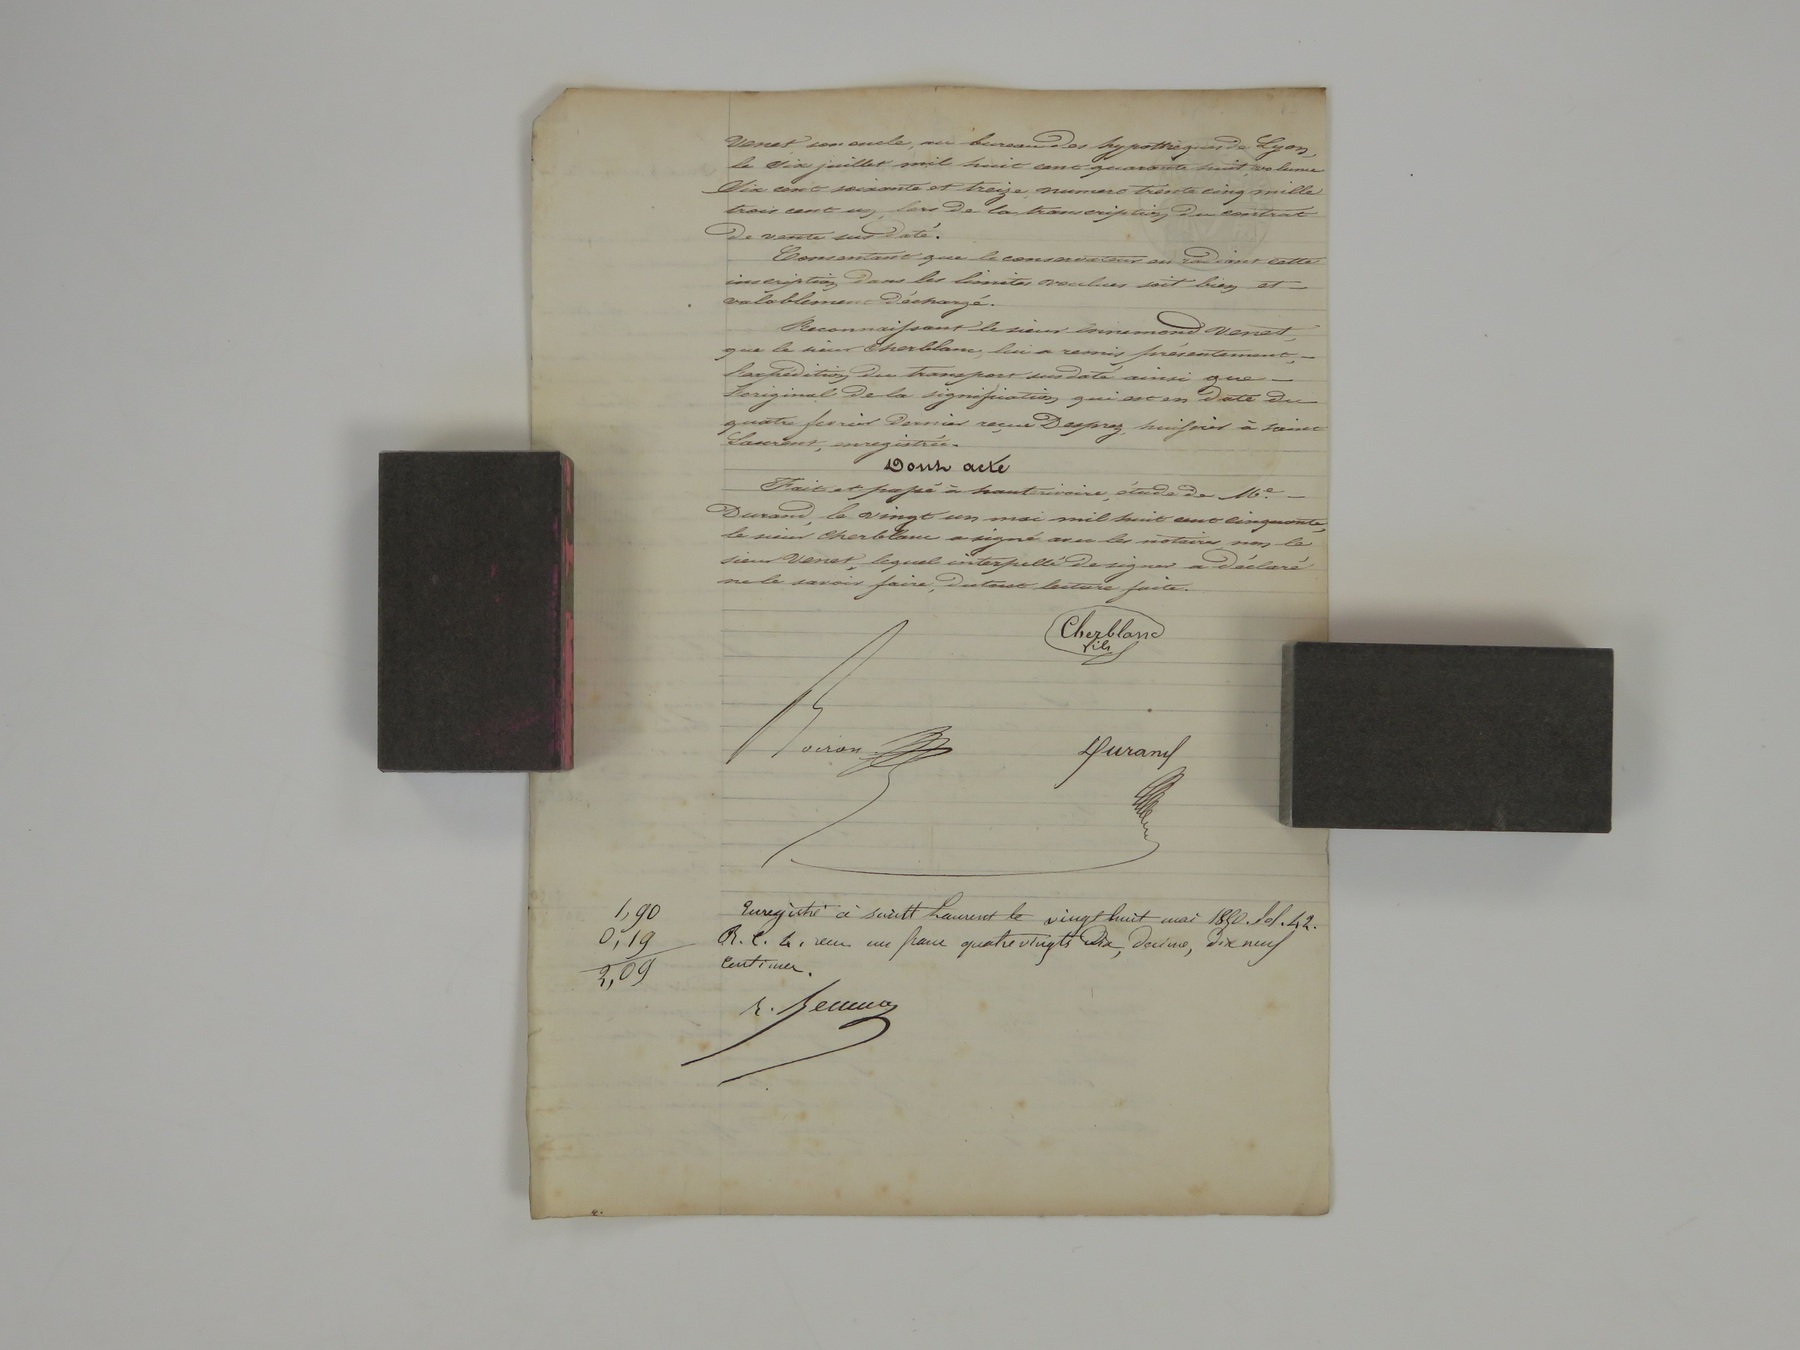 Venet son oncle, au bureau des hypothèques de Lyon,
le Six juillet mil huit cent quarante huit, volume
Six cent soixante et treize, numero trente cinq mille
trois cent un, lors de la transcription du contrat
de vente sus daté.
Consentant que le conservateur en radiant cette
inscription dans les limites voulues soit bien et —
valablement déchargé.
Reconnaissant le sieur Ennemond Venet,
que le sieur Cherblanc, lui a remis présentement, —
l'expédition du transport susdaté ainsi que —
l'original de la signification qui est en date du
quatre fevrier dernier reçue Desprez, huissier à saint
Laurent, enregistrée.
Dont acte
Fait et passé à hauterivoire, étude de Me. —
Durand, le vingt un mai mil huit cent cinquante,
le sieur Cherblanc a signé avec les notaires non le
sieur Venet, lequel interpellé de signer a déclaré
ne le savoir faire, du tout lecture faite.
Cherblanc
fils
Voiron Durand
1,90 Enregistré à saint Laurent le vingt huit mai 1850. fol. 42.
0,19 R. C. 4, reçu un franc quatre vingts dix, decime, dix neuf
2,09 centimes.